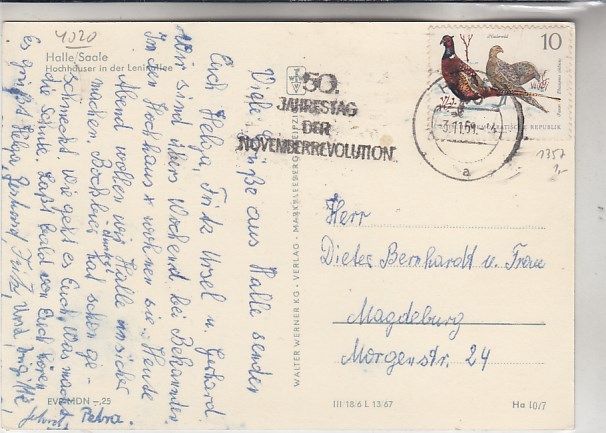 4020
Halle/Saale
Hochhäuser in der Leninallee
Viele Grüße aus Halle senden
Euch Helga, Fritz Ursel u. Gerhard.
Wir sind übers Wochend bei Bekannten
In den Hochhaus x wohnen sie. Heute
Abend wollen wir Halle unsicher
machen. Bockbier hat schon ge-
schmeckt. Wie geht es Euch, was macht
die Schule. Laßt bald von Euch hören
Es grüßt Helga, Gerhard, Fritz, und
Petra.
EVP MDN -,25
WALTER WERNER KG · VERLAG · MARKKLEEBERG
50.
JAHRESTAG
DER
NOVEMBERREVOLUTION
10
DEUTSCHE DEMOKRATISCHE REPUBLIK
a
1357
Herr
Dieter Bernhardt u. Frau
Magdeburg
Morgenstr. 24
III 18/6 L 13/67
Ha 10/7